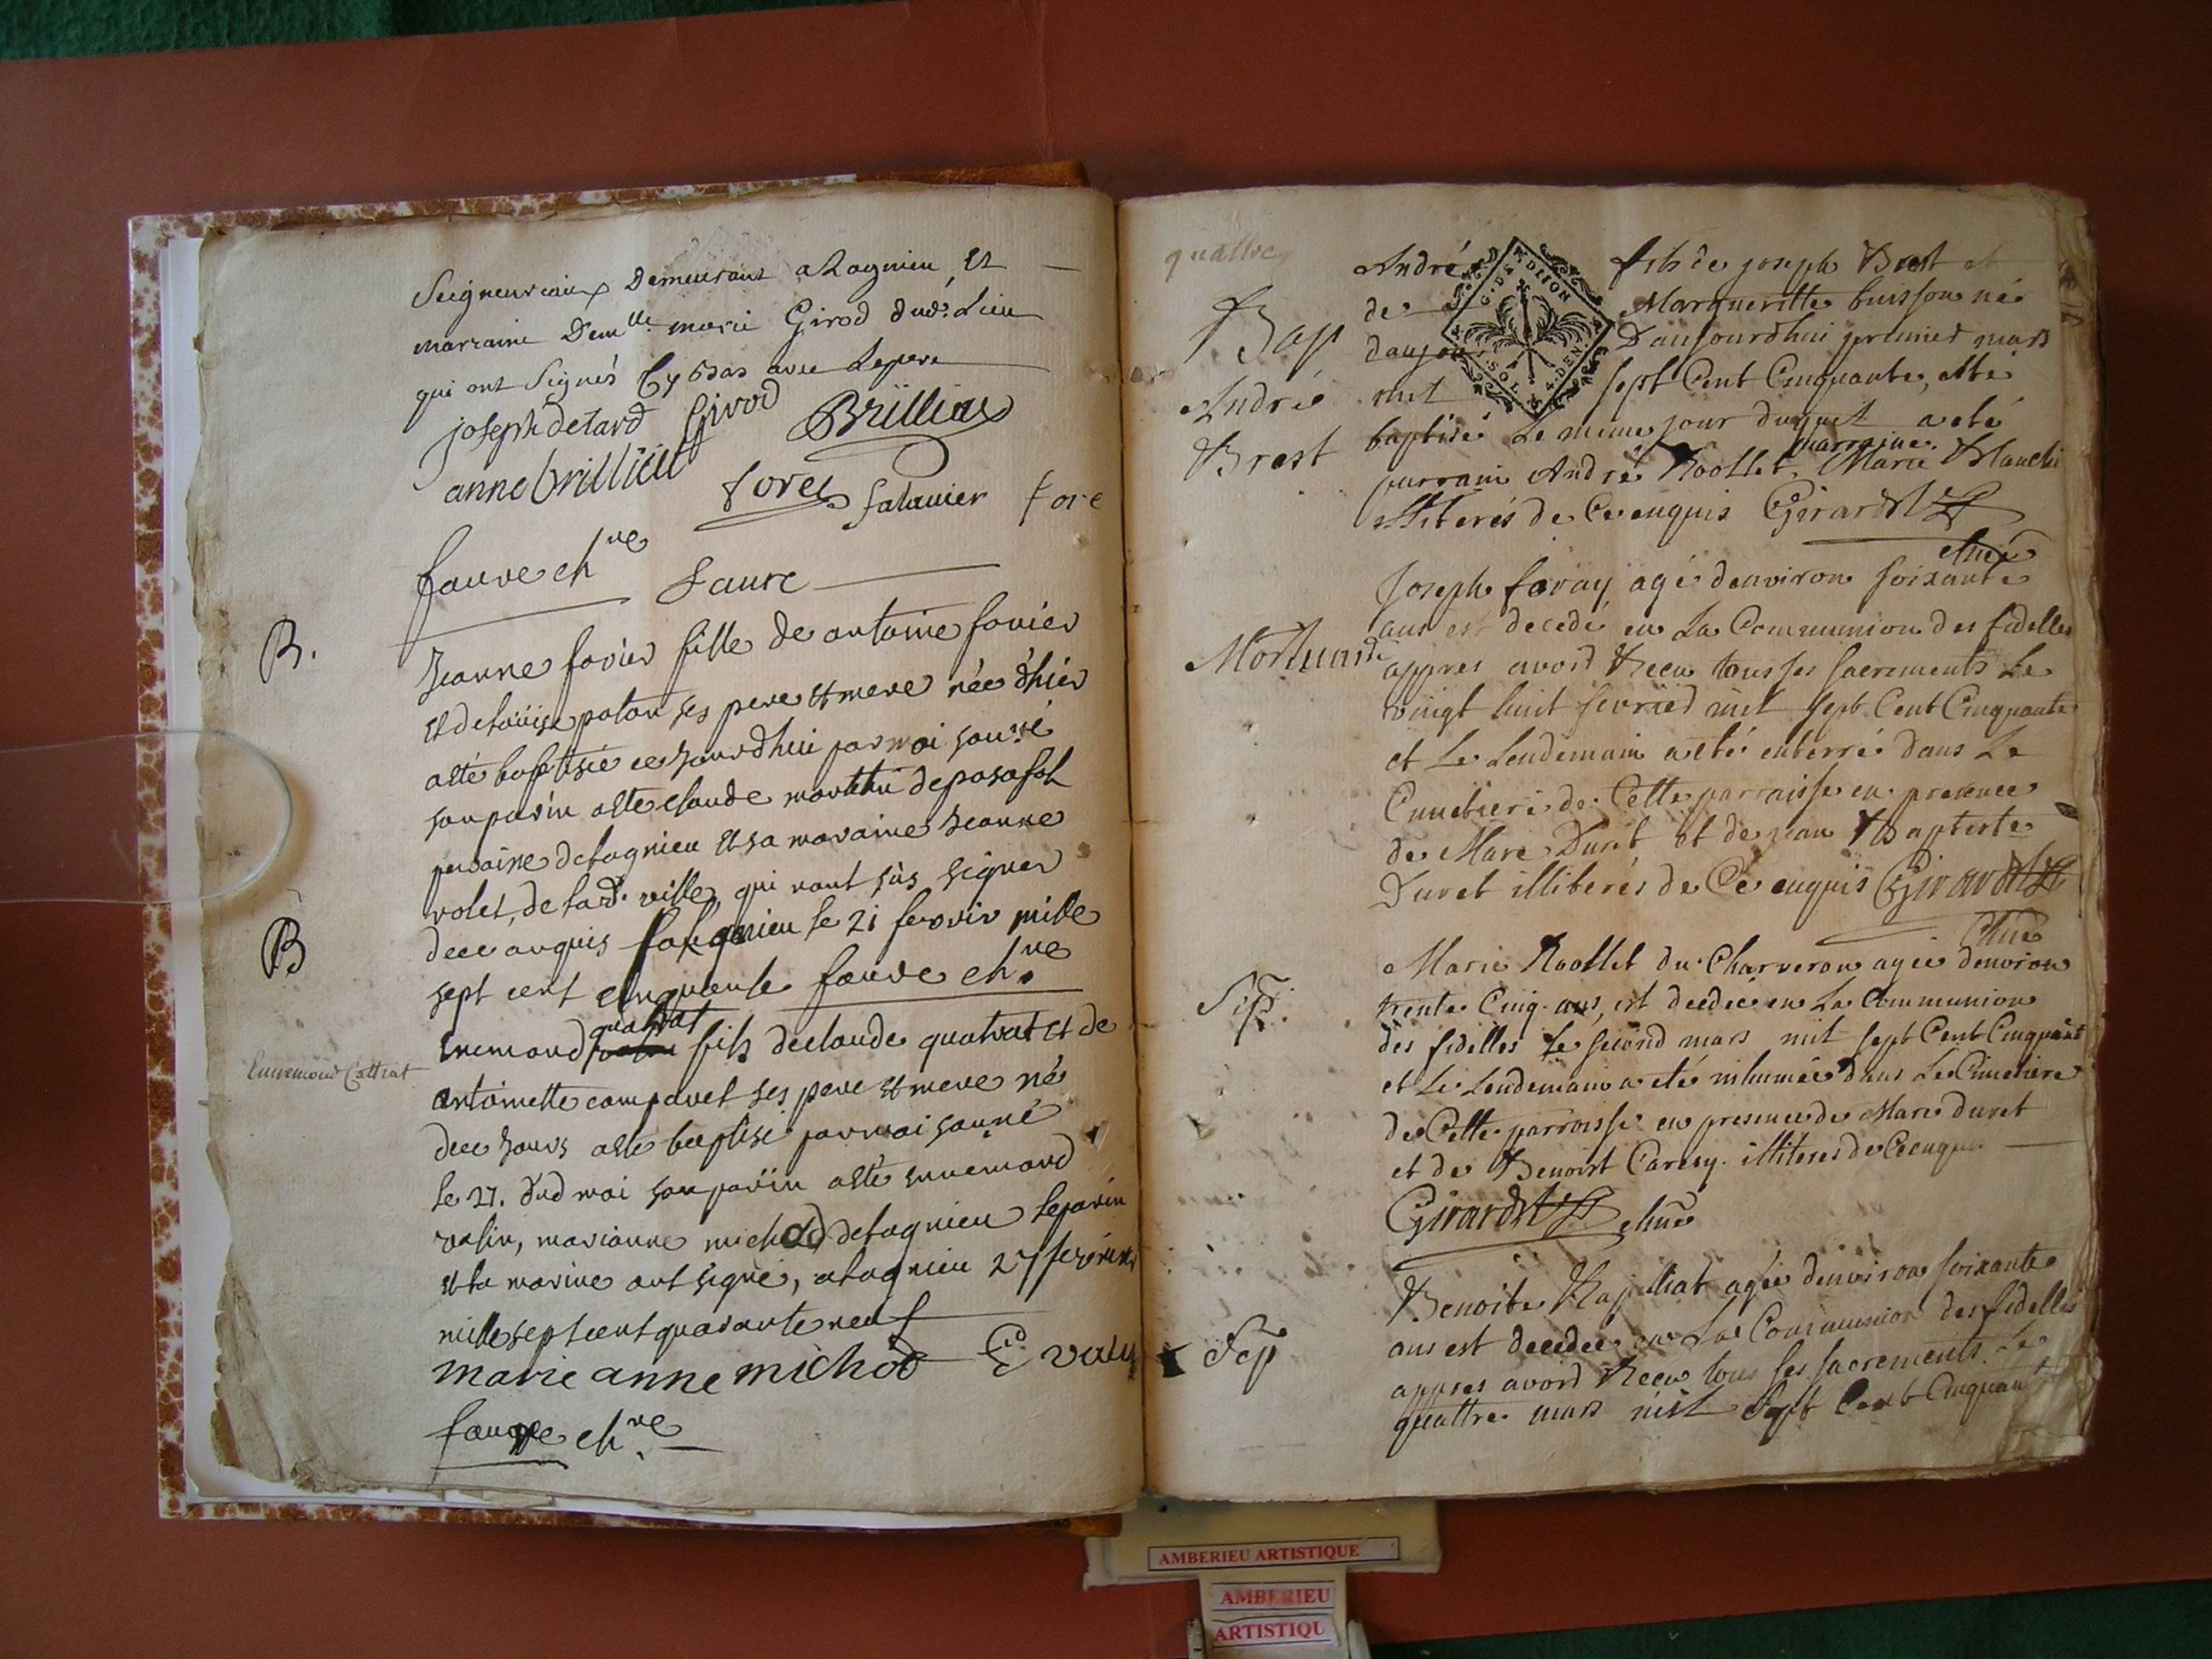 Seigneuriaux Demeurant a Lagnieu Et
marraine Dem.lle marie Girod dud. Lieu
qui ont Signés Cy bas avec Lepere
joseph detard Girod Brillias
anne brillieu
forel falavier fore
fauve ch.ne
faure
B.
Jeanne favier fille de antoine favier
et de loüise ses pere et mere née d'hier
a ete baptisée ce jourdhui par moi
son parin a ete claude de
de lagnieu et sa maraine jeanne
volet, de lad. ville, qui nont sus signer
dece anquis lagnieu le 21 fevrir mille
sept cent cinquante fauve ch.ne
B
Ennemond Cattrat
quatrat
enemond fils de claude quatrat et de
antoinette comparet ses pere et mere né
dece jours a ete baptisé par moi
le 27. dud moi son parin a eté ennemond
valin, marianne michod de lagnieu le parin
et la marine ont signé, a lagnieu 27 fevrier
mille sept cent quarante neuf
marie anne michod E.d valy
fauve ch.ne
quattre
André fils de joseph Brest et
de Margueritte buisson né
Bap
D'aujourdhui premier mars
mil sept Cent Cinquante, a eté
André
baptisé Le meme jour duquel a eté
Brest
marraine
parrain André Roollet, Marie Blanchi
illiterés de Ce enquis Girardet
chne
Joseph favay agé d'environ soixante
ans est decedé en La Communion des fidelles
Mortuaire
appres avoir Receu tous ses sacrements Le
vingt huit fevrier mil sept Cent Cinquante
et Le Lendemain a eté enterré dans Le
Cimetiere de Cette parroisse en presence
de Marc Duret et de jean Baptiste
Duret illiterés de Ce enquis Girardet
chne
Marie Roollet du Charveron agée d'environ
Sep.
trente Cinq ans, est decedée en La Communion
des fidelles Le second mars mil sept Cent Cinquante
et Le Lendemain a eté inhumée dans Le Cimetiere
de Cette parroisse en presence de Marc duret
et de Benoist illiterés de Ce enquis
Girardet chne
Benoite Rapilliat agée d'environ soixante
ans est decedée en La Communion des fidelles
Sep
appres avoir Receu tous ses sacrements Le
quattre mars mil Sept Cent Cinquante
G. DE DIJON
SOL 4 DEN.
AMBERIEU ARTISTIQUE
AMBERIEU
ARTISTIQU